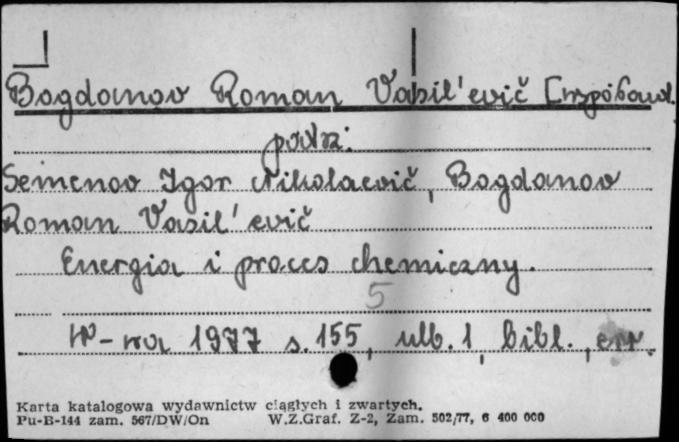 Bogdanov Roman Vasil'evič [współaut.
patrz:
Semenov Igor Nikolaevič, Bogdanov
Roman Vasil'evič
Energia i proces chemiczny.
5
W-wa 1977 s. 155, ulb. 1, bibl.,
Karta katalogowa wydawnictw ciągłych i zwartych.
Pu-B-144 zam. 567/DW/On W.Z.Graf. Z-2, Zam. 502/77, 6 400 000